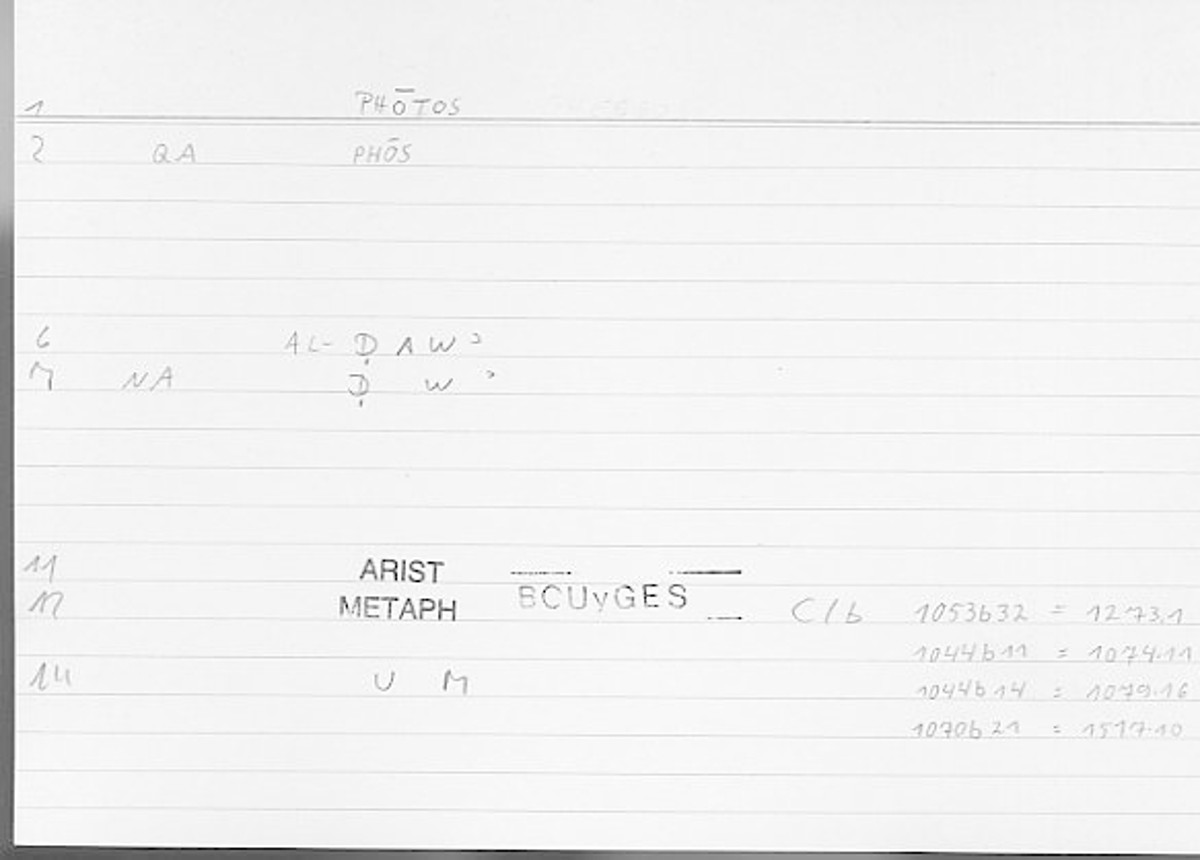 1 PHŌTOS
2 QA PHŌS
6 AL-ḌAWʾ
7 NA Ḍ W ʾ
11 ARIST
12 METAPH BOUyGES C/b 1053b32 = 1273.1
1044b11 = 1074.11
14 U M 1044b14 = 1079.16
1070b21 = 1517.10